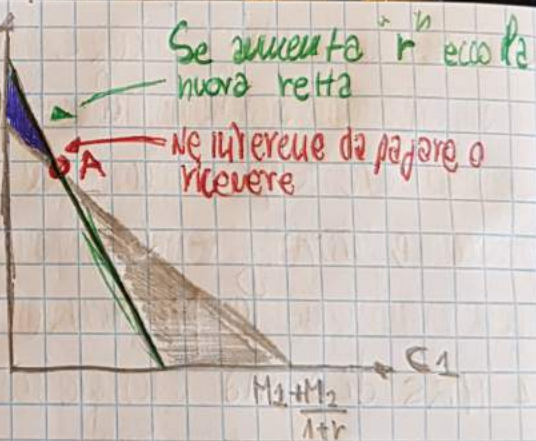 Se aumenta "r" ecco la
nuova retta
Ne interesse da pagare o
ricevere
A
C1
M1+M2
1+r